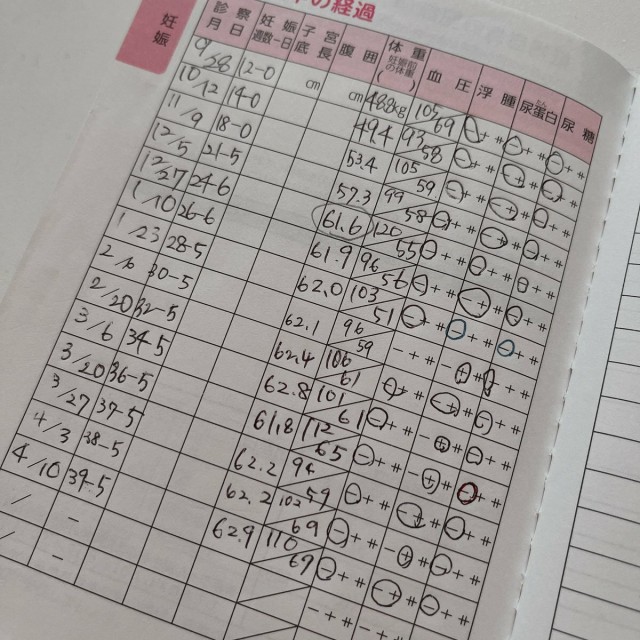 の経過
妊娠
診察月日 妊娠週数-日 子宮底長 腹囲 体重 妊娠前の体重 ( 血圧 浮腫 尿蛋白 尿糖
12-0 cm cm 48.8kg 105/69 - + ⧺ - + ⧺ - + ⧺
10/12 14-0 49.4 97/58 - + ⧺ - + ⧺ - + ⧺
11/9 18-0 53.4 105/59 - + ⧺ - + ⧺ - + ⧺
12/5 21-5 57.3 99/58 - + ⧺ - + ⧺ - + ⧺
12/27 24-6 61.6 120/55 - + ⧺ - + ⧺ - + ⧺
1/10 26-6 61.9 96/56 - + ⧺ - + ⧺ - + ⧺
1/23 28-5 62.0 103/51 - + ⧺ - + ⧺ - + ⧺
30-5 62.1 96/59 - + ⧺ - + ⧺ - + ⧺
2/20 32-5 62.4 106/61 - + ⧺ - + ⧺ - + ⧺
3/6 34-5 62.8 101/61 - + ⧺ - + ⧺ - + ⧺
3/20 36-5 61.8 112/65 - + ⧺ - + ⧺ - + ⧺
3/27 37-5 62.2 - + ⧺ - + ⧺ - + ⧺
4/3 38-5 62.2 102/59 - + ⧺ - + ⧺ - + ⧺
4/10 39-5 62.9 110/69 - + ⧺ - + ⧺ - + ⧺
/ -
/ -